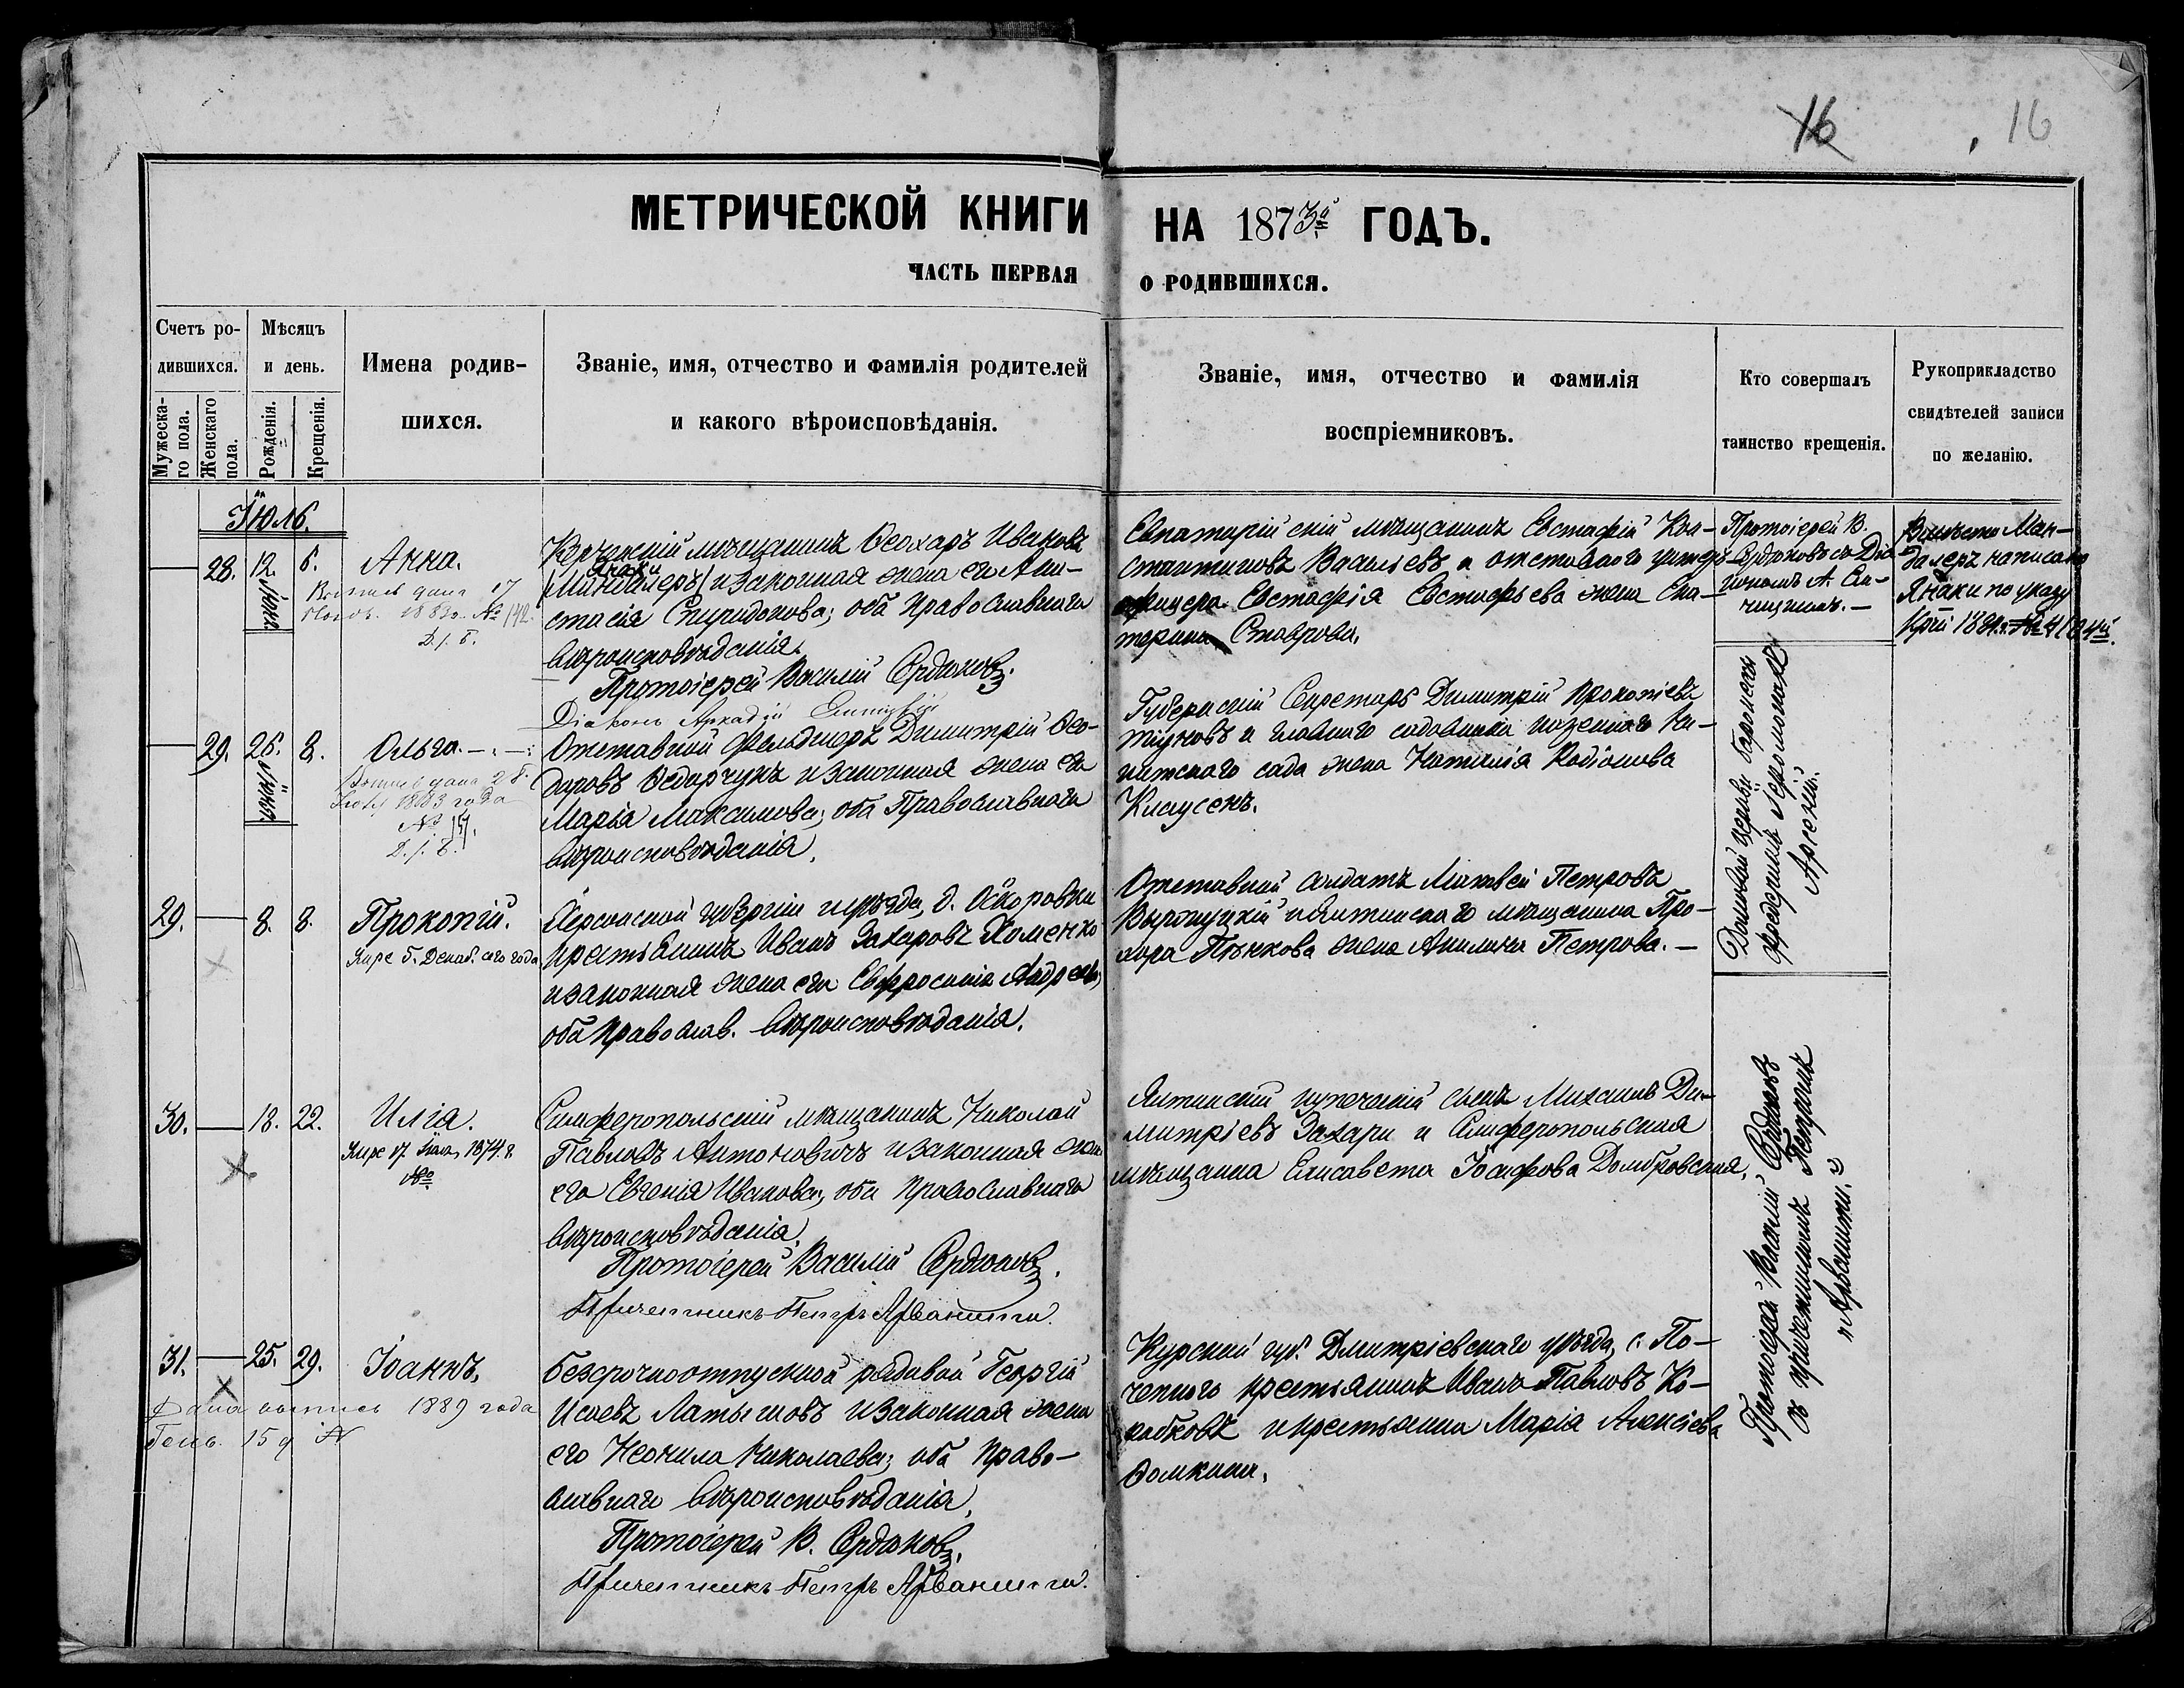 16
16
МЕТРИЧЕСКОЙ КНИГИ НА 1873й ГОДЪ.
ЧАСТЬ ПЕРВАЯ О РОДИВШИХСЯ.
Счетъ ро-
дившихся.
Мужеска-
го пола.
Женскаго
пола.
Мѣсяцъ
и день.
Рожденія.
Крещенія.
Имена родив-
шихся.
Званіе, имя, отчество и фамилія родителей
и какого вѣроисповѣданія.
Званіе, имя, отчество и фамилія
воспріемниковъ.
Кто совершалъ
таинство крещенія.
Рукоприкладство
свидѣтелей записи
по желанію.
Іюль.
28. 12. Іюня. 6. Анна.
Выпись дана 17
1883 г. № 142.
Керченскій мѣщанинъ Ѳеохаръ Ивановъ
Янаки
(Миндалеръ) и законная жена его Ана-
стасія Спиридонова; оба Православнаго
вѣроисповѣданія.
Протоіерей Василій Сердюковъ.
Діаконъ Аркадій
Евпаторійскій мѣщанинъ Евстафій Кон-
стантиновъ Васильевъ и отставного унтеръ-
офицера Евстафія Евстафьева жена Ека-
терина Ставрова.
Протоіерей В.
Сердюковъ съ Діа-
кономъ А.
Вмѣсто Мин-
далеръ написано
Янаки по указу
29. 26. Іюня. 8. Ольга.
Выпись дана 28.
1883 года
№
Отставной Фельдшеръ Димитрій Ѳео-
доровъ Ѳедорчукъ и законная жена его
Марія Максимова; оба Православнаго
вѣроисповѣданія.
Губернскій Секретарь Димитрій Прокопіевъ
и главнаго садовника казеннаго Ни-
китскаго сада жена Наталія Родіонова
Клаусенъ.
Домовой церкви баронессы
Фредерикъ Іеромонахъ
Арсеній.
29. 8. 8. Прокопій.
Умре 5. Декаб. сего года
Херсонской губерніи и уѣзда, д.
крестьянинъ Иванъ Захаровъ Хоменко
и законная жена его Евфросинія Андреева,
оба Православ. вѣроисповѣданія.
Отставной солдатъ Матвей Петровъ
и Ялтинскаго мѣщанина Про-
хора жена Акилина Петрова.
30. 18. 22. Илія.
Умре 17 1874 г.
№
Симферопольскій мѣщанинъ Николай
Павловъ Антоновичъ и законная жена
его Евгенія Иванова; оба православнаго
вѣроисповѣданія.
Протоіерей Василій Сердюковъ.
Причетникъ Петръ Арванитти.
Ялтинскій купеческій сынъ Михаилъ Ди-
митріевъ Захари и Симферопольская
мѣщанка Елисавета Іосифова Домбровская.
Протоіерей Василій Сердюковъ
съ причетникомъ Петромъ
Арванитти.
31. 25. 29. Іоаннъ.
Дана выпись 1889 года
Генв. 15 д №
Безсрочноотпускной рядовой Георгій
Исаевъ Латышовъ и законная жена
его Неонила Николаева; оба Право-
славнаго вѣроисповѣданія.
Протоіерей В. Сердюковъ.
Причетникъ Петръ Арванитти.
Курской губ. Дмитріевскаго уѣзда, с. По-
чепнаго крестьянинъ Иванъ Павловъ Ко-
и крестьянка Марія Алексіева
Ѳомкина.